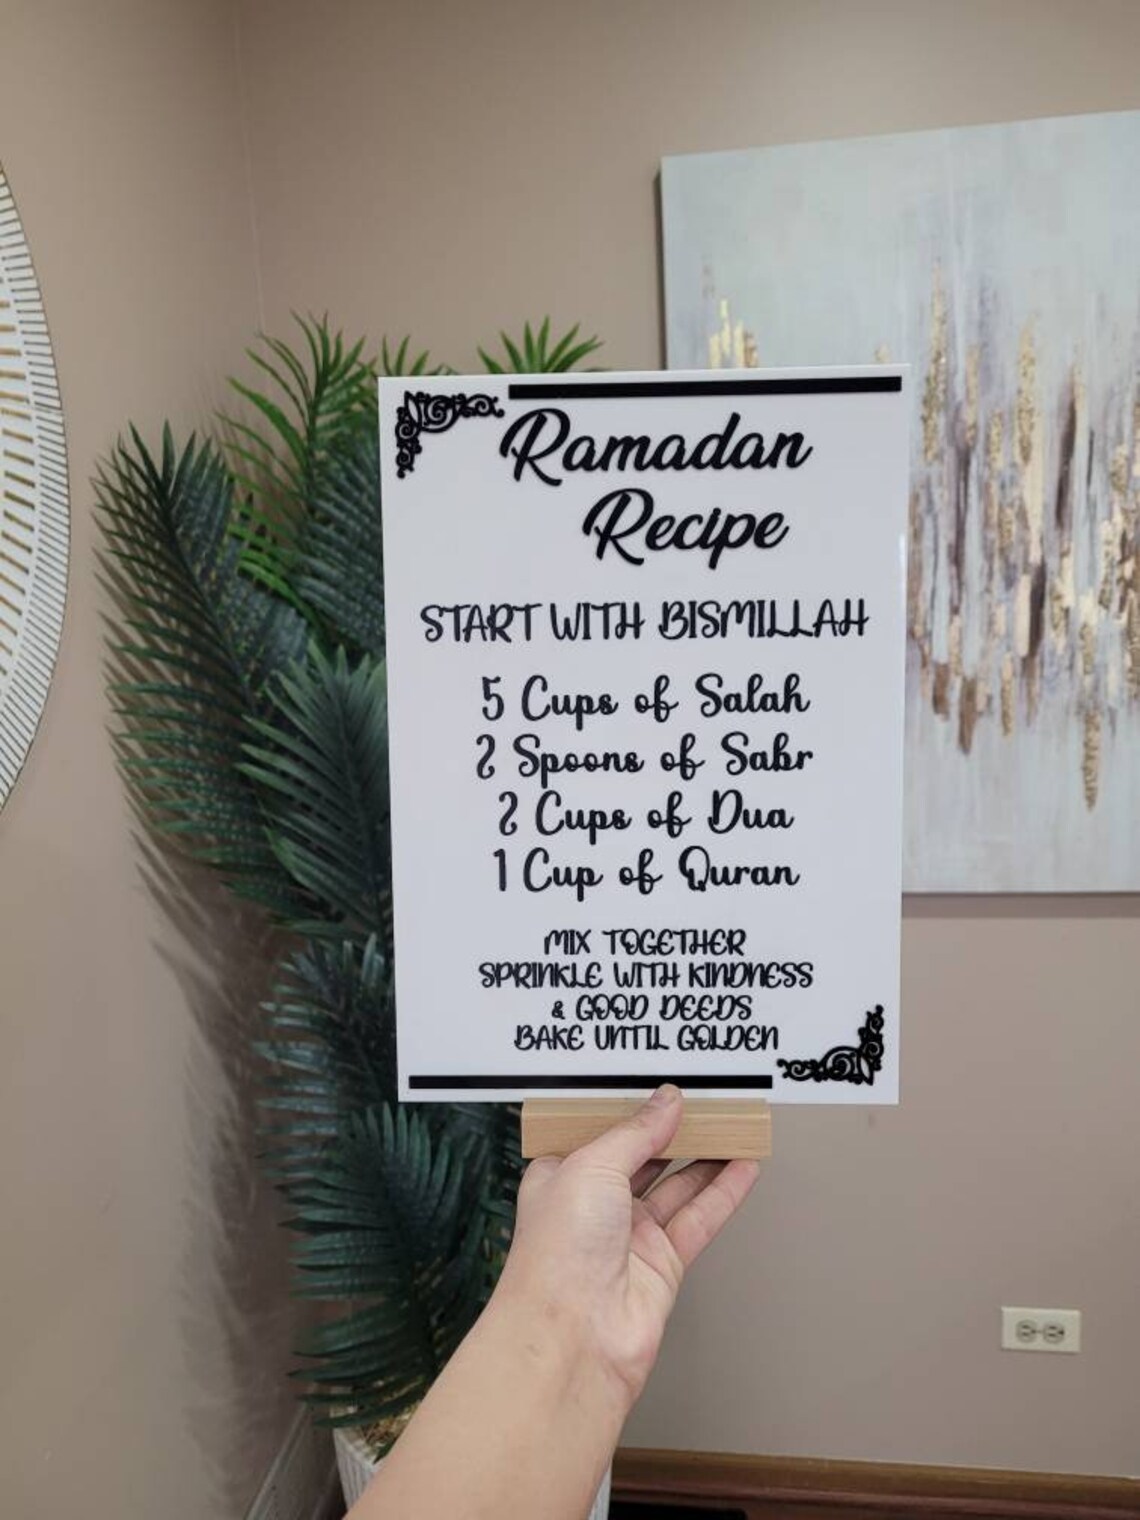 Ramadan
Recipe
START WITH BISMILLAH
5 Cups of Salah
2 Spoons of Sabr
2 Cups of Dua
1 Cup of Quran
MIX TOGETHER
SPRINKLE WITH KINDNESS
& GOOD DEEDS
BAKE UNTIL GOLDEN